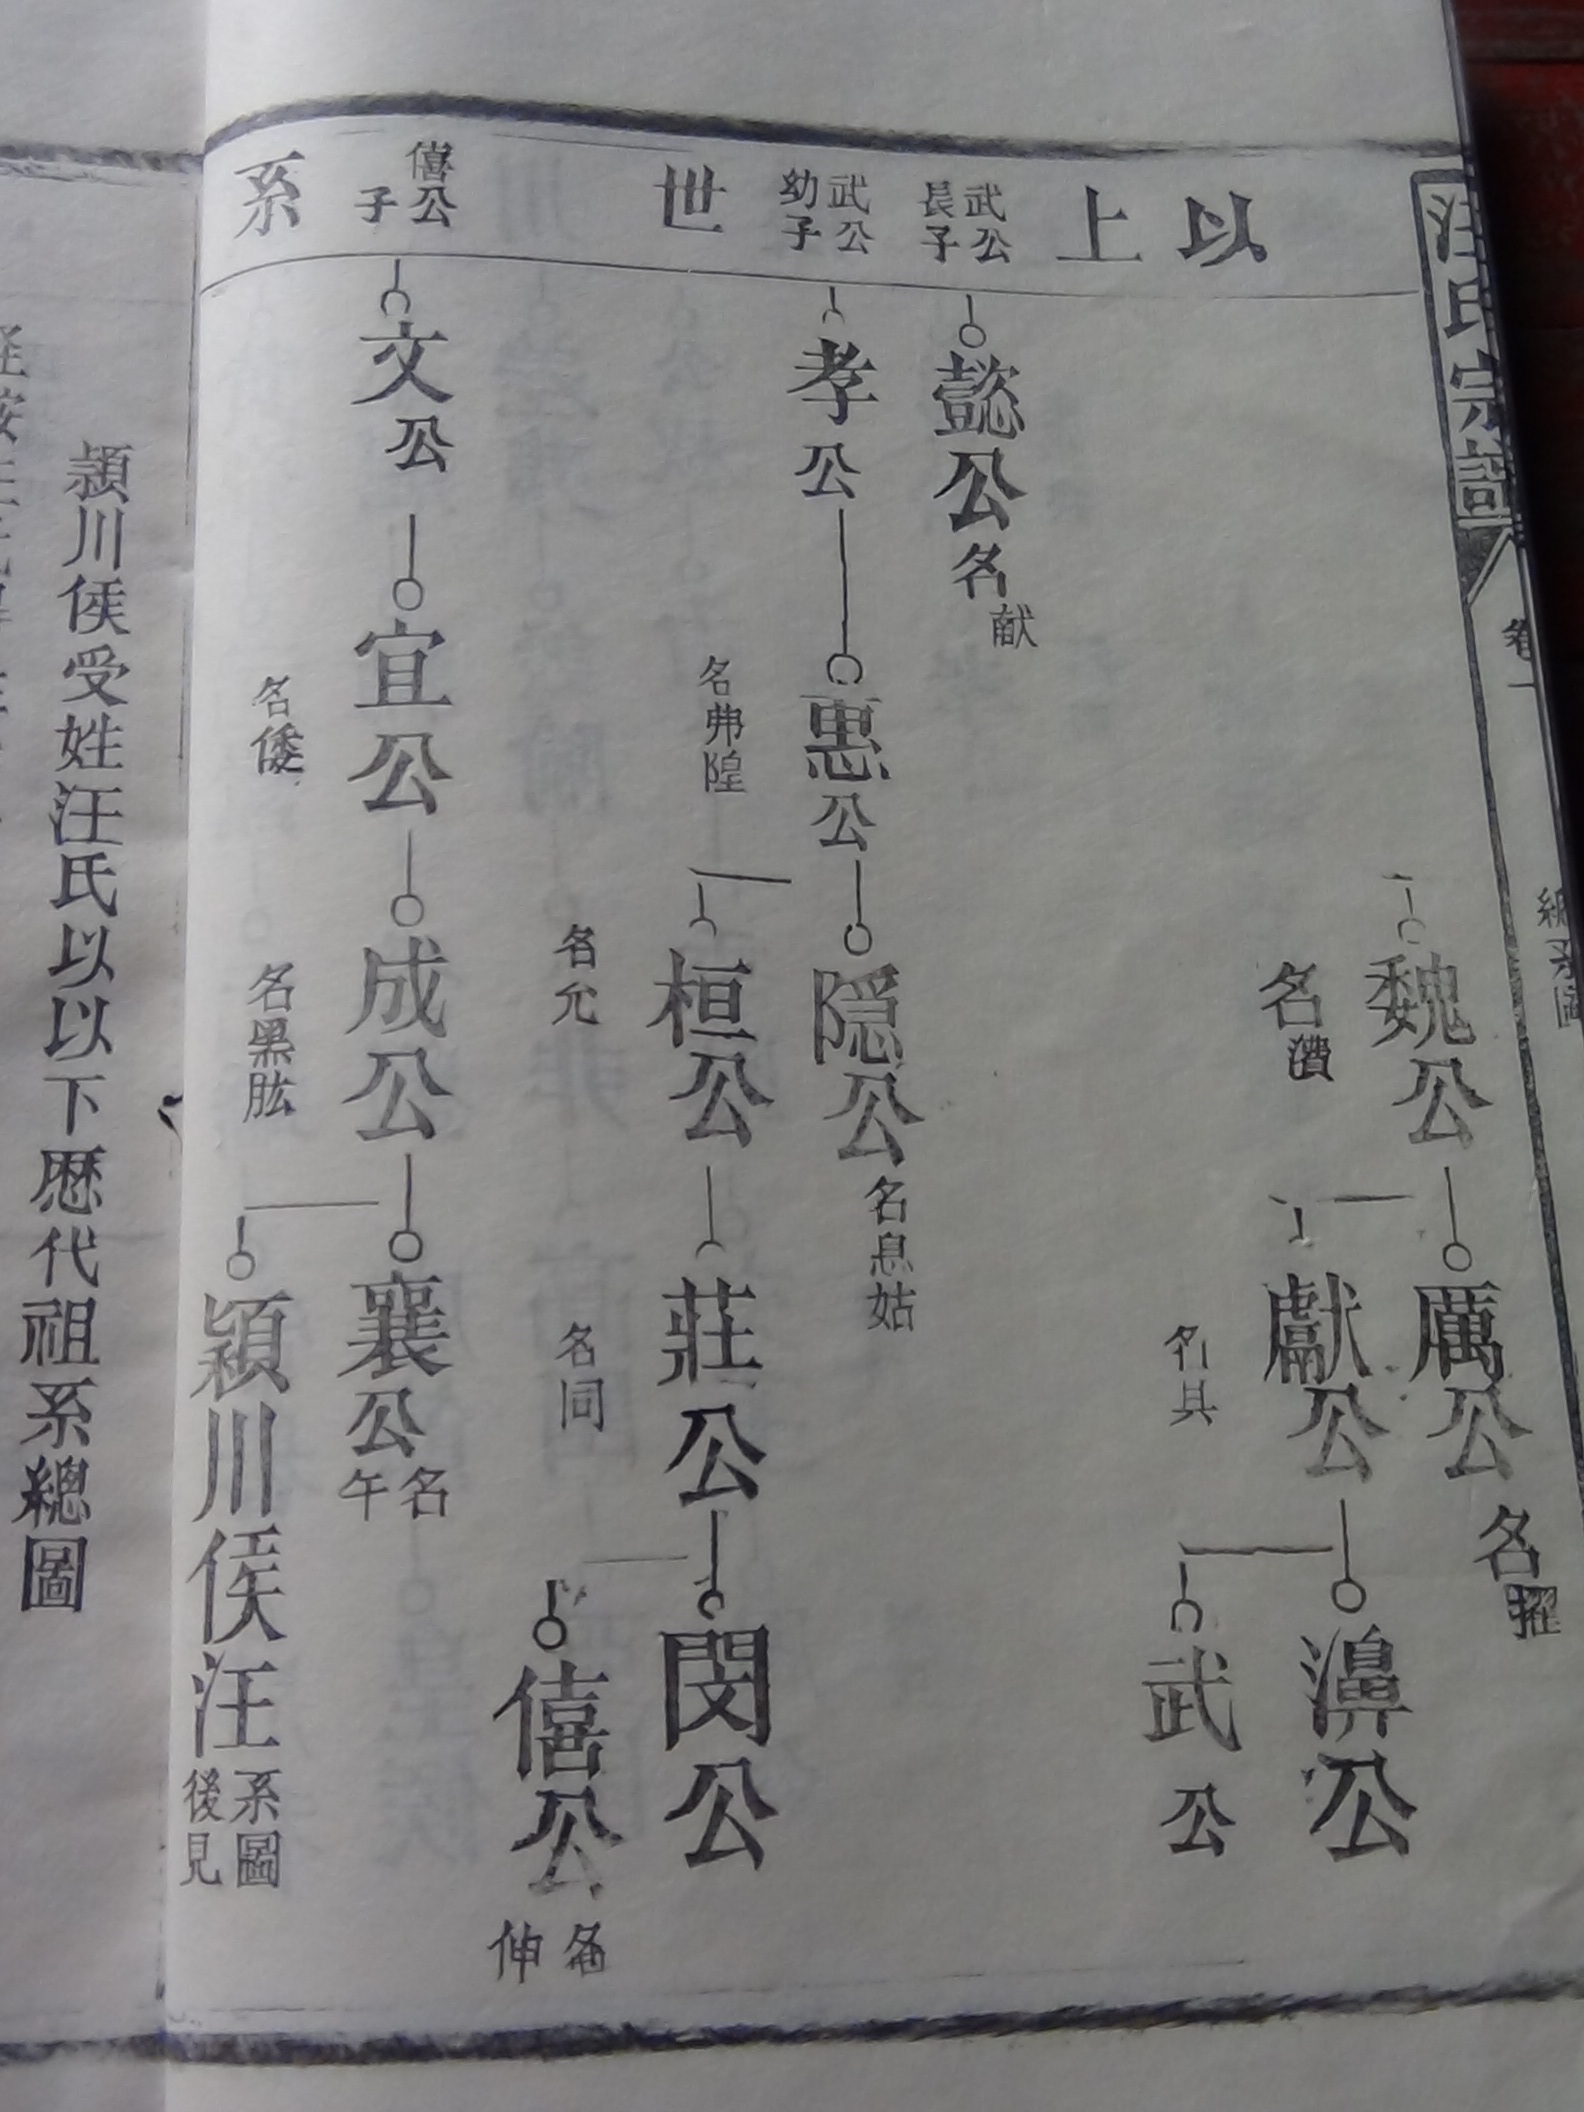 汪氏宗譜
卷一
總系圖
以上世系
魏公
名㵒
厲公
名擢
獻公
名具
濞公
武公
武公長子
懿公
名献
武公幼子
孝公
惠公
名弗隍
隠公
名息姑
桓公
名允
莊公
名同
閔公
僖公
名伸
僖公子
文公
宣公
名倭
成公
名黑肱
襄公
名午
潁川侯汪
系圖後見
頴川侯受姓汪氏以以下歷代祖系總圖